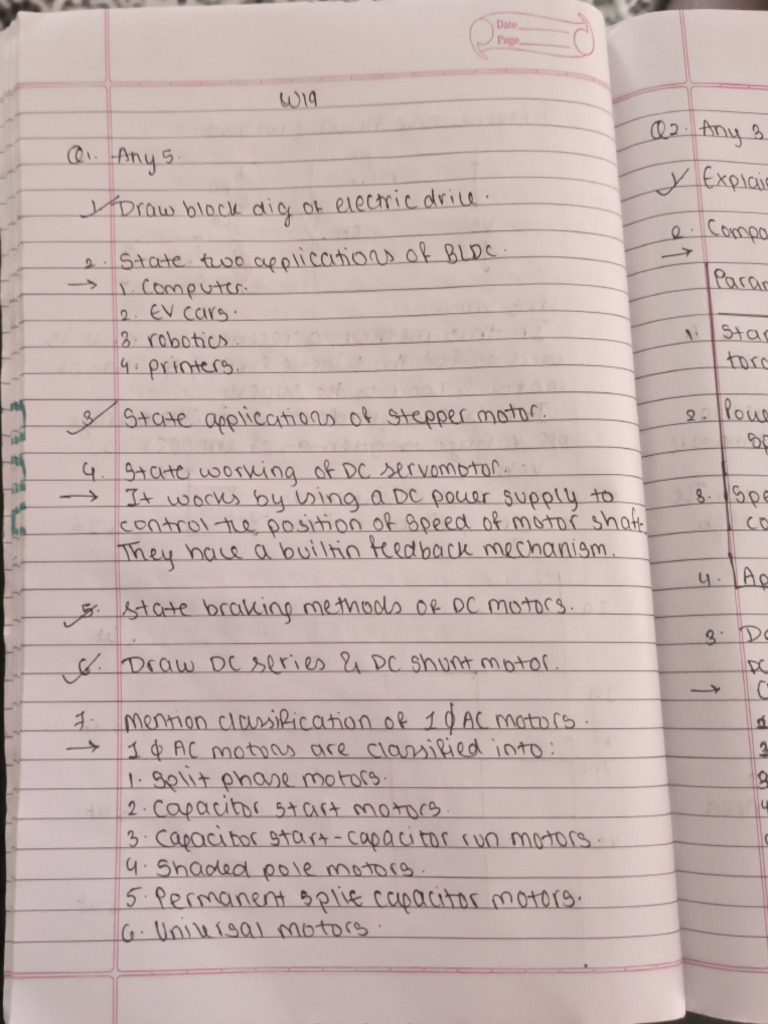 Date
Page
W19
Q1. Any 5.
1. Draw block dig of electric drive.
2. State two applications of BLDC.
→ 1. Computer.
2. EV cars.
3. robotics
4. printers.
3. State applications of stepper motor.
4. State working of DC servomotor.
→ It works by using a DC power supply to
control the position of speed of motor shaft.
They have a builtin feedback mechanism.
5. State braking methods of DC motors.
6. Draw DC series & DC shunt motor.
7. Mention classification of 1 ϕ AC motors.
→ 1 ϕ AC motors are classified into:
1. Split phase motors.
2. Capacitor start motors.
3. Capacitor start-capacitor run motors.
4. Shaded pole motors.
5. Permanent split capacitor motors.
6. Universal motors.
Q2. Any 3
1. Explai
2. Compa
→
Param
1. Star
torq
2. Powe
Sp
3. Spe
co
4. Ap
3. Dc
DC
→
1
2
3
4